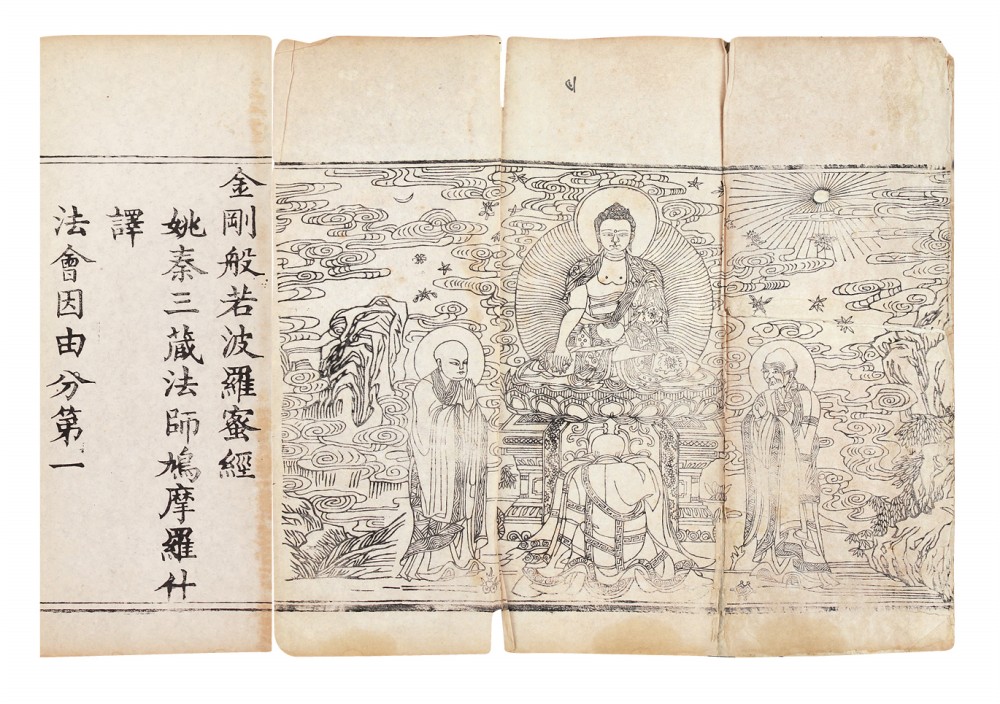 金剛般若波羅蜜經
姚秦三藏法師鳩摩羅什
譯
法會因由分第一